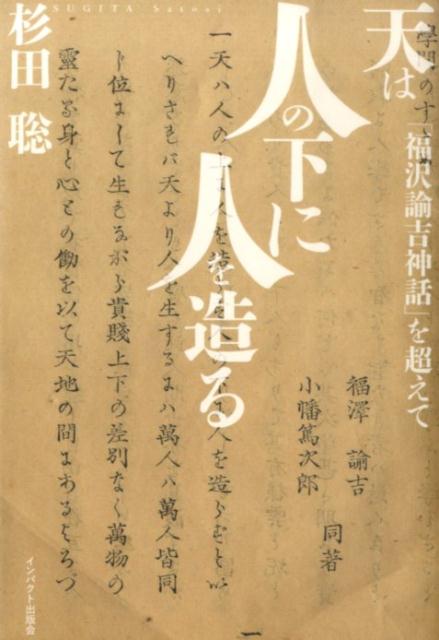 天は
人の下に
人を造る
「福沢諭吉神話」を超えて
SUGITA Satosi
杉田 聡
學問のすゝめ
福澤 諭吉
小幡篤次郎
同著
一天ハ人の上に人を造らず人の下に人を造らずと以
へりさもバ天より人を生ずるにハ萬人ハ萬人皆同
ド位にして生もながら貴賤上下の差別なく萬物の
靈たる身と心との働を以て天地の間にあるよろづ
一
インパクト出版会